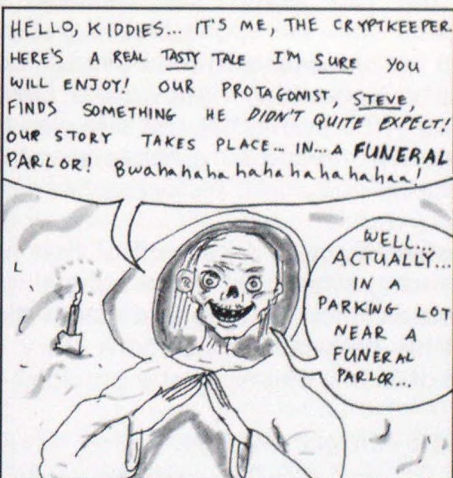 HELLO, KIDDIES... IT'S ME, THE CRYPTKEEPER.
HERE'S A REAL TASTY TALE I'M SURE YOU
WILL ENJOY! OUR PROTAGONIST, STEVE,
FINDS SOMETHING HE DIDN'T QUITE EXPECT!
OUR STORY TAKES PLACE... IN... A FUNERAL
PARLOR! Bwahahaha hahahahahahaa!
WELL...
ACTUALLY...
IN A
PARKING LOT
NEAR A
FUNERAL
PARLOR...